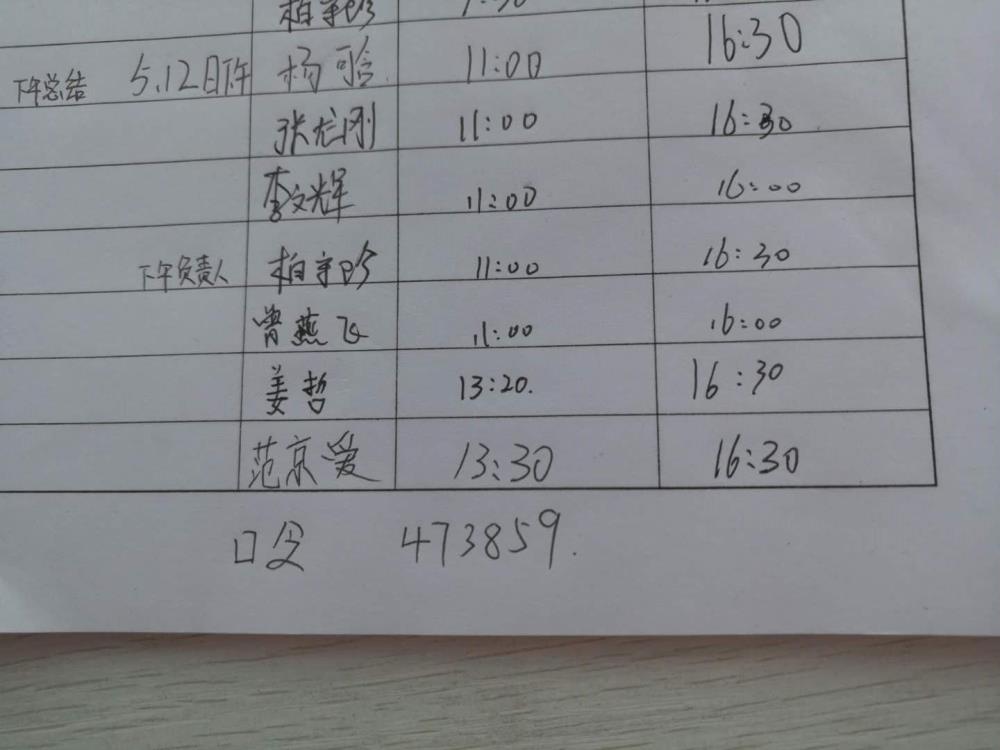 柏宇珍
下午总结 5.12日下午 杨可含 11:00 16:30
张龙刚 11:00 16:30
李文辉 11:00 16:00
下午负责人 柏宇珍 11:00 16:30
曾燕飞 11:00 16:00
姜哲 13:20. 16:30
范京爱 13:30 16:30
口令 473859.